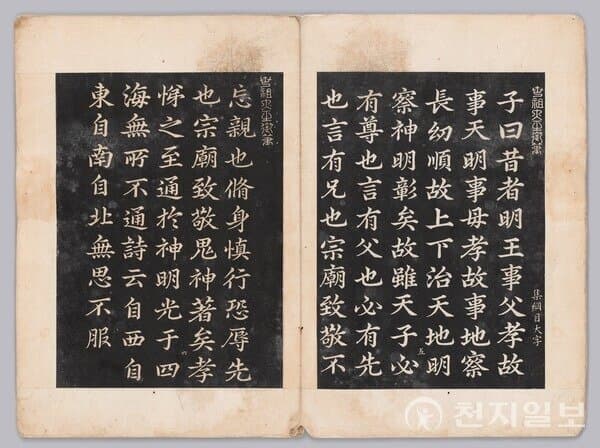 子曰昔者明王事父孝故
事天明事母孝故事地察
長幼順故上下治天地明
察神明彰矣故雖天子必
有尊也言有父也必有先
也言有兄也宗廟致敬不
集綱目大字
五
忘親也脩身慎行恐辱先
也宗廟致敬鬼神著矣孝
悌之至通於神明光于四
海無所不通詩云自西自
東自南自北無思不服
六
천지일보